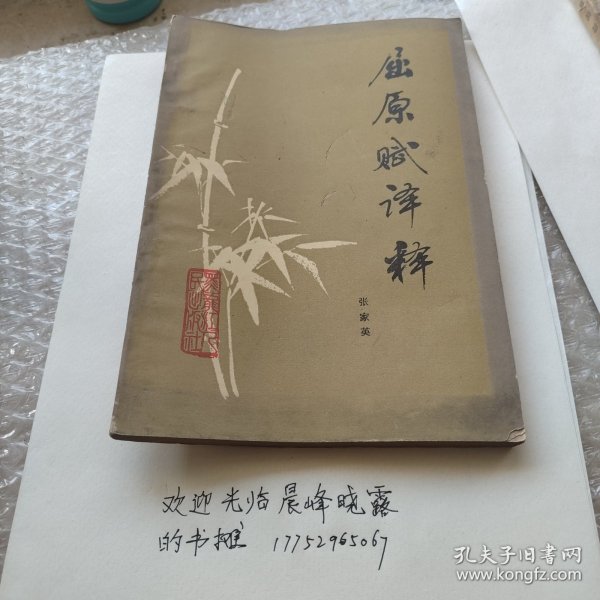 屈原赋译释
张家英
黑龙江人
民出版社
欢迎光临晨峰晓露
的书摊 17752965067
孔夫子旧书网
www.kongfz.com